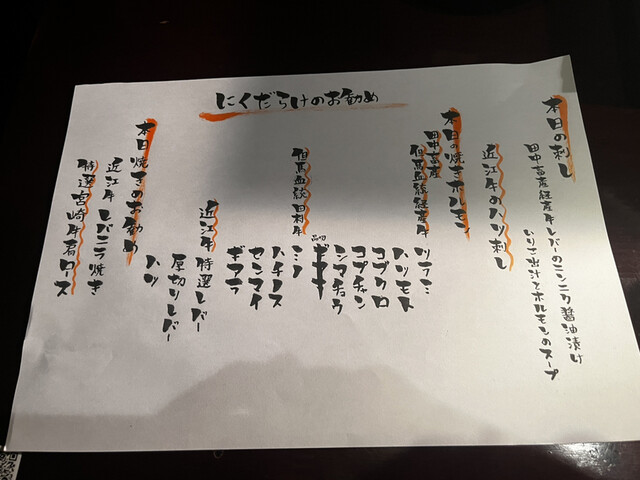 にくだらけのお勧め
本日の刺し
田中畜産経産牛レバーのニンニク醤油漬け
いりこ出汁とホルモンのスープ
近江牛のハツ刺し
本日の焼きホルモン
田中畜産
但馬血統経産牛
ツラミ
ハツモト
コブクロ
コプチャン
シマチョウ
但馬血統田村牛
ミノ
ハチノス
センマイ
ギアラ
近江牛
特選レバー
厚切りレバー
ハツ
本日焼きのお勧め
近江牛 レバニラ焼き
特選宮崎牛君ロース